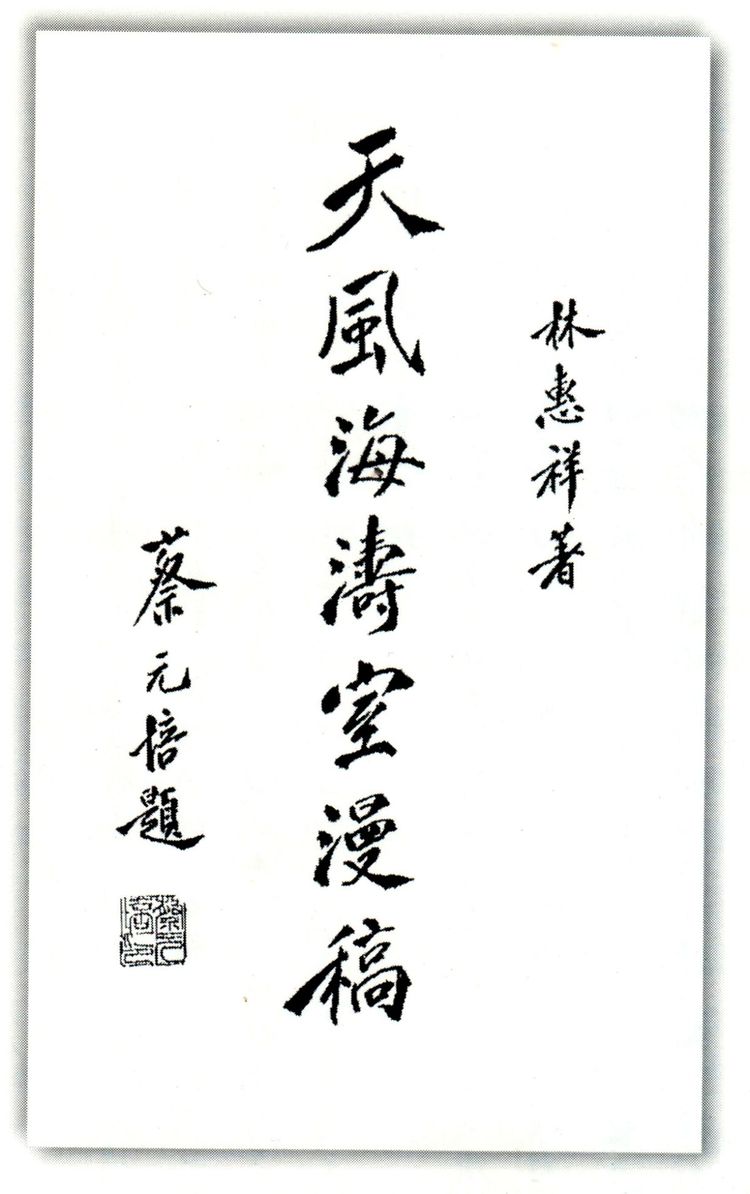 林惠祥著
天風海濤室漫稿
蔡元培題